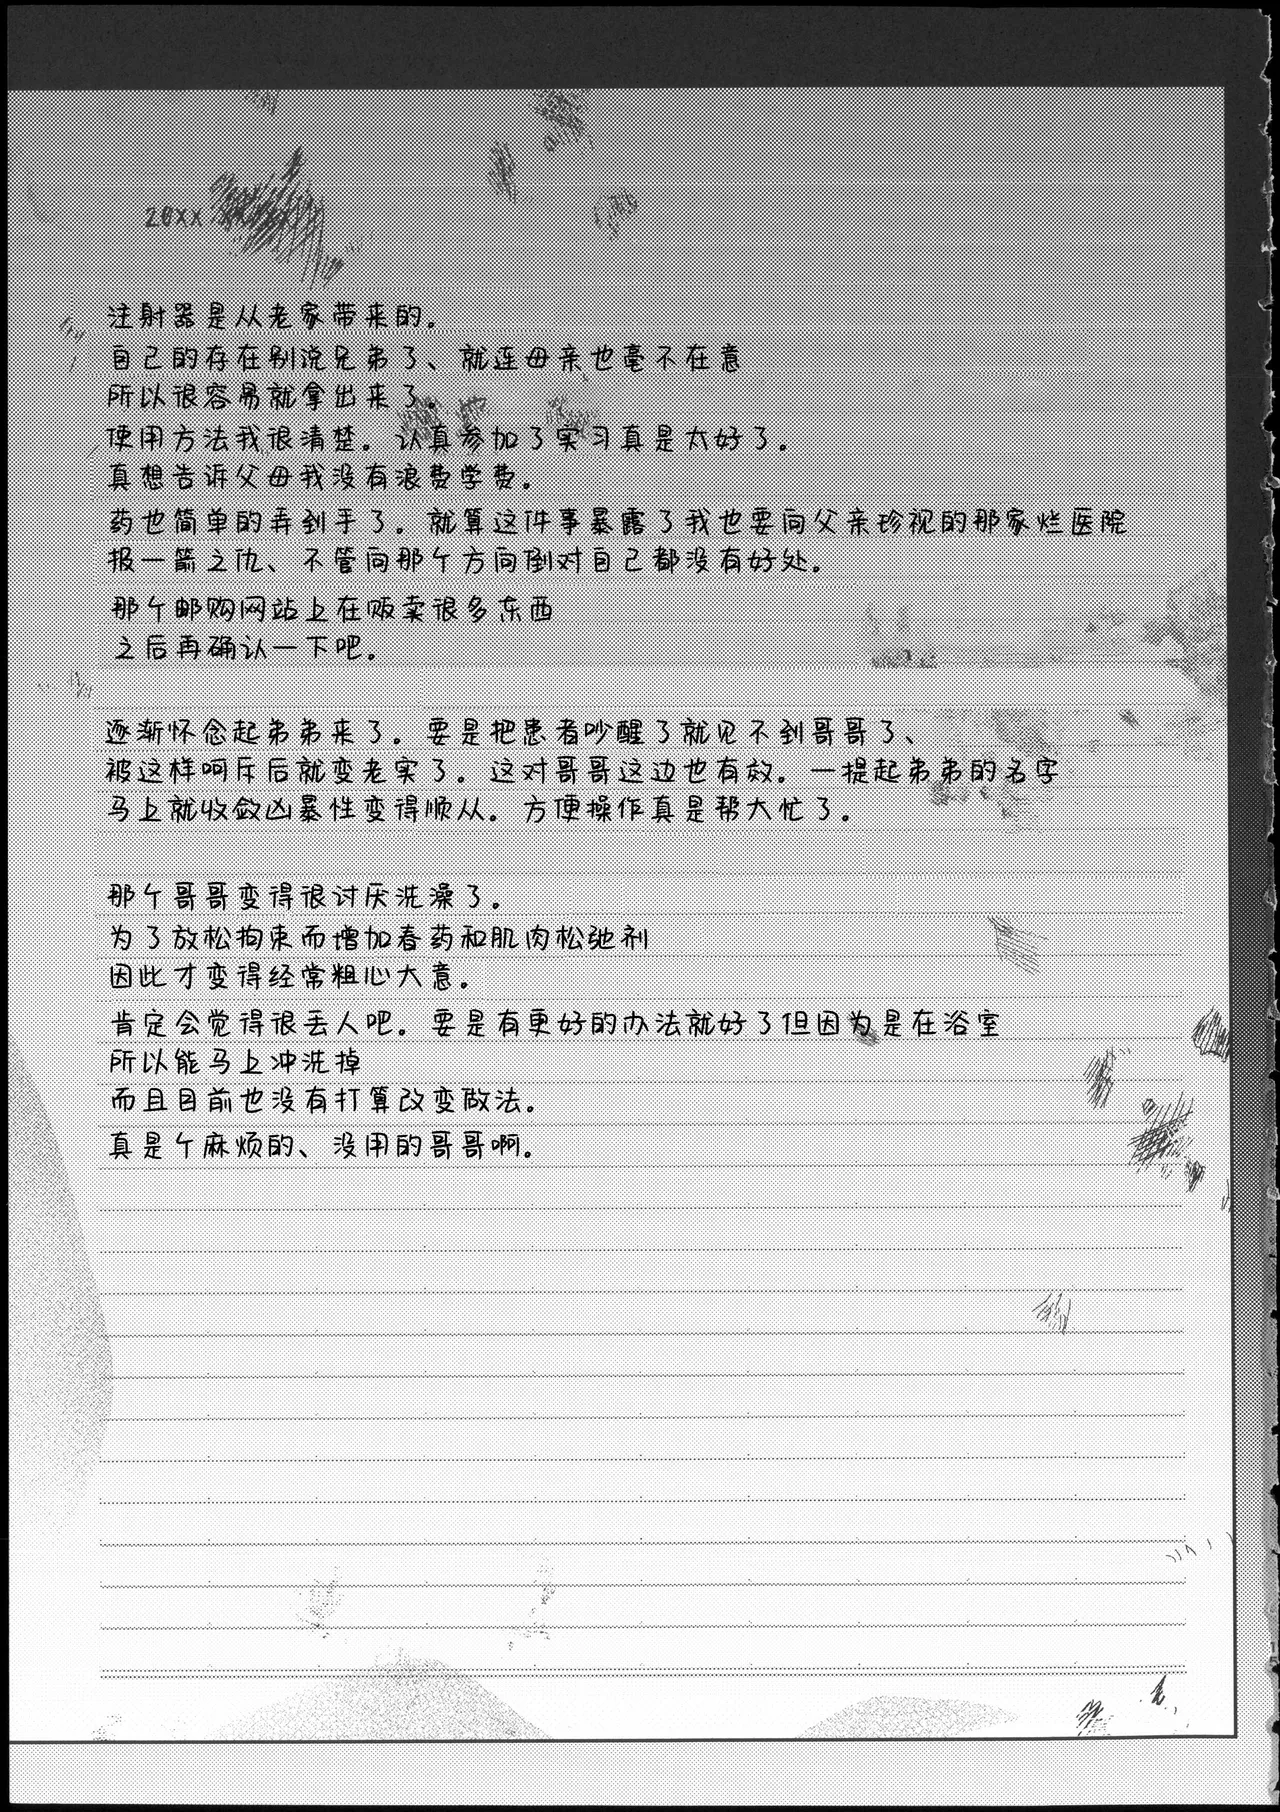 20XX
注射器是从老家带来的。
自己的存在别说兄弟了、就连母亲也毫不在意
所以很容易就拿出来了。
使用方法我很清楚。认真参加了实习真是太好了。
真想告诉父母我没有浪费学费。
药也简单的弄到手了。就算这件事暴露了我也要向父亲珍视的那家烂医院
报一箭之仇、不管向那个方向倒对自己都没有好处。
那个邮购网站上在贩卖很多东西
之后再确认一下吧。
逐渐怀念起弟弟来了。要是把患者吵醒了就见不到哥哥了、
被这样呵斥后就变老实了。这对哥哥这边也有效。一提起弟弟的名字
马上就收敛凶暴性变得顺从。方便操作真是帮大忙了。
那个哥哥变得很讨厌洗澡了。
为了放松拘束而增加春药和肌肉松弛剂
因此才变得经常粗心大意。
肯定会觉得很丢人吧。要是有更好的办法就好了但因为是在浴室
所以能马上冲洗掉
而且目前也没有打算改变做法。
真是个麻烦的、没用的哥哥啊。